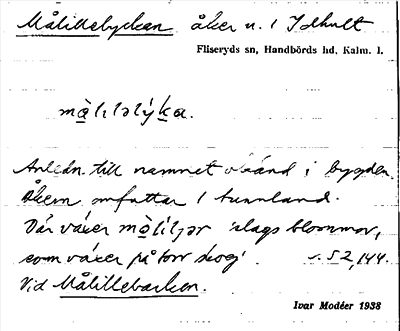 Målillebyckan åker n. 1 Idhult
Fliseryds sn, Handbörds hd, Kalm. l.
målilalýka.
Anledn. till namnet okänd i bygden.
Åkern omfattar 1 tunnland.
Där växer målìljər slags blommor,
som växer på torr skog. s. 52, 144.
Vid Målillebacken.
Ivar Modéer 1938